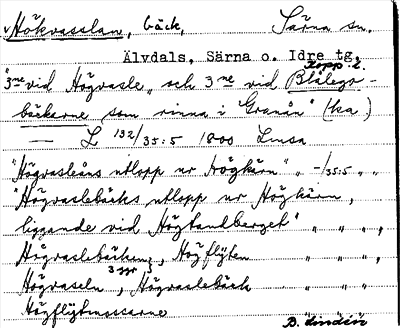 Hökvasslan, bäck, Särna sn.
Älvdals, Särna o. Idre tg.
Kopp. l.
"3ne vid Högvasle och 3ne vid Blålegs-
bäckarne som rinna i Granån" (ka)
— L 132/35:5 1800 Lmsa
"Högvasleåns utlopp ur Högkärn" " -/35:5 " "
"Högvaslebäcks utlopp ur Högkärn,
liggande vid Högtandberget" " " " "
Högvaslebäcken, Högflyten " " "
3 ggr
Högvaseln, Högvaslebäck " " "
Högflytmossarne
B. Lindén